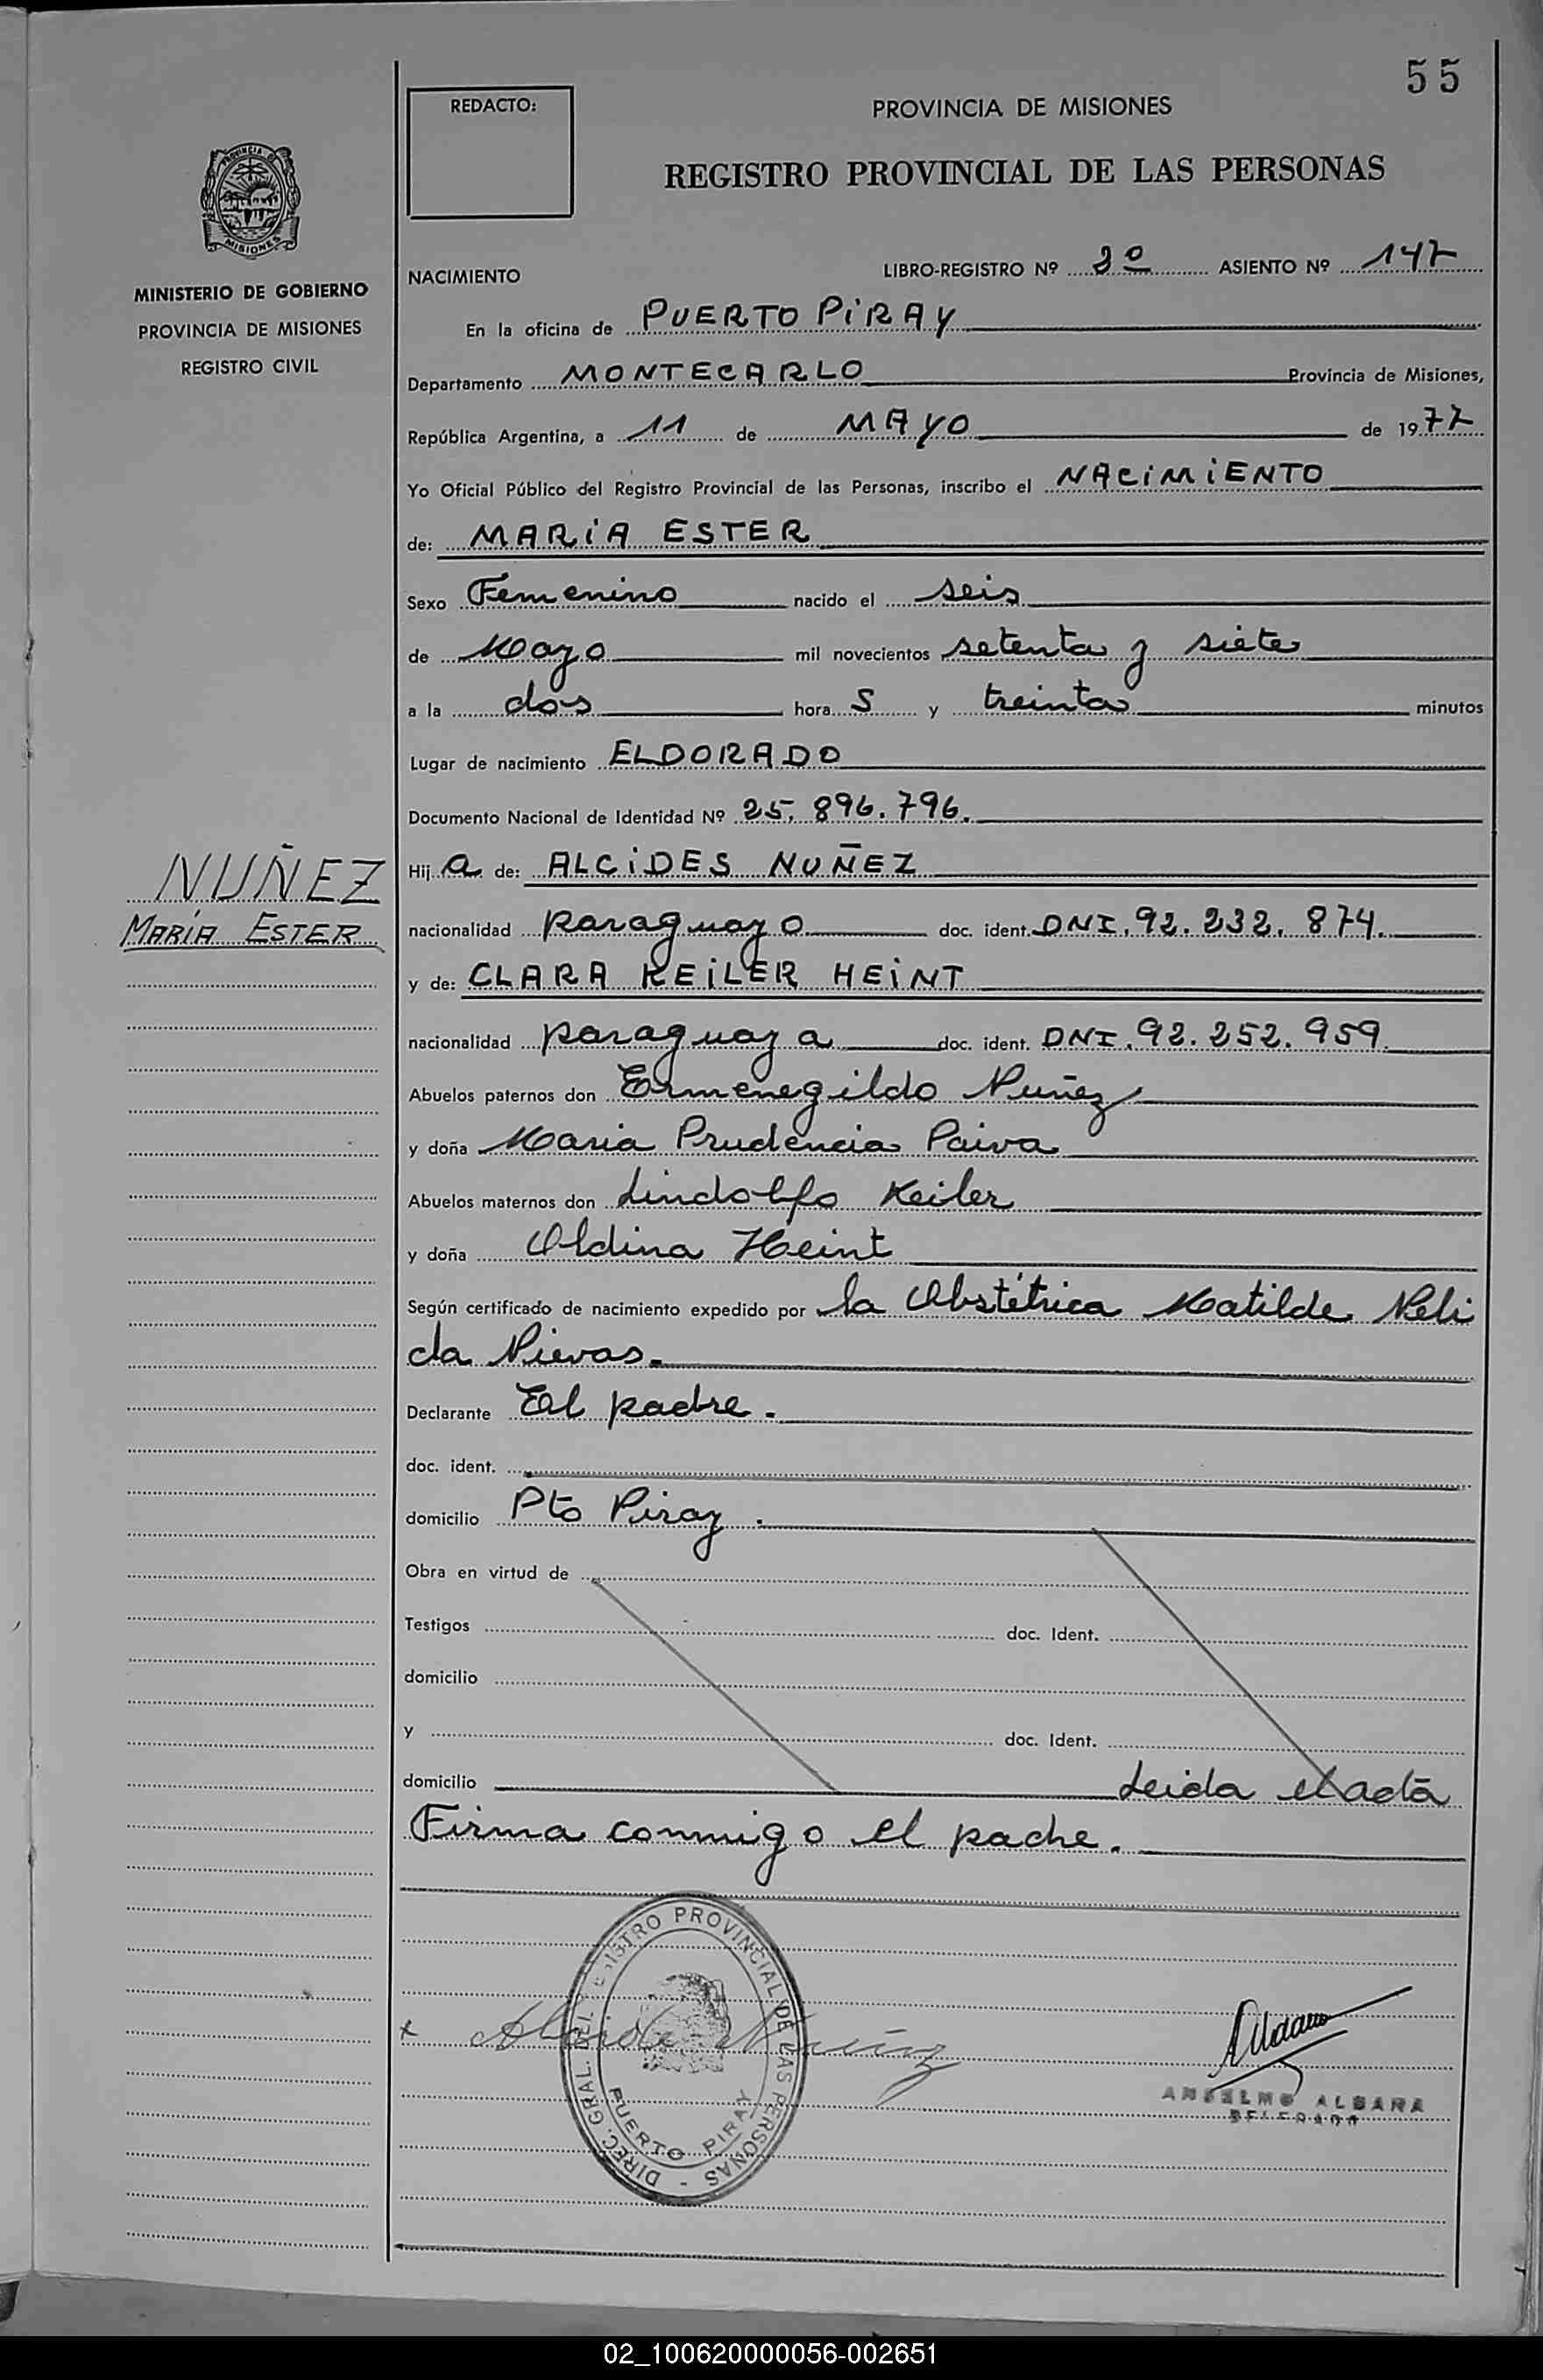 55
REDACTO:
PROVINCIA DE MISIONES
REGISTRO PROVINCIAL DE LAS PERSONAS
PROVINCIA DE
MISIONES
MINISTERIO DE GOBIERNO
PROVINCIA DE MISIONES
REGISTRO CIVIL
NACIMIENTO LIBRO-REGISTRO Nº 2º ASIENTO Nº 147
En la oficina de PUERTO PIRAY
Departamento MONTECARLO Provincia de Misiones,
República Argentina, a 11 de MAYO de 1977
Yo Oficial Público del Registro Provincial de las Personas, inscribo el NACIMIENTO
de: MARIA ESTER
Sexo Femenino nacido el seis
de Mayo mil novecientos setenta y siete
a la dos hora s y treinta minutos
Lugar de nacimiento ELDORADO
Documento Nacional de Identidad Nº 25.896.796.
NUÑEZ
MARÍA ESTER
Hij a de: ALCIDES NUÑEZ
nacionalidad paraguayo doc. ident. DNI. 92.232.874.
y de: CLARA KEILER HEINT
nacionalidad paraguaya doc. ident. DNI. 92.252.959.
Abuelos paternos don Ermenegildo Nuñez
y doña Maria Prudencia Paiva
Abuelos maternos don Lindolfo Keiler
y doña Oldina Heint
Según certificado de nacimiento expedido por la Obstétrica Matilde Neli
da Nievas.
Declarante El padre.
doc. ident.
domicilio Pto Piray.
Obra en virtud de
Testigos doc. Ident.
domicilio
y doc. Ident.
domicilio Leida el acta
Firma conmigo el padre.
DIREC. GRAL. DEL REGISTRO PROVINCIAL DE LAS PERSONAS -
PUERTO PIRAY
x Alcides Nuñez
ANSELMO ALBARA
02_100620000056-002651